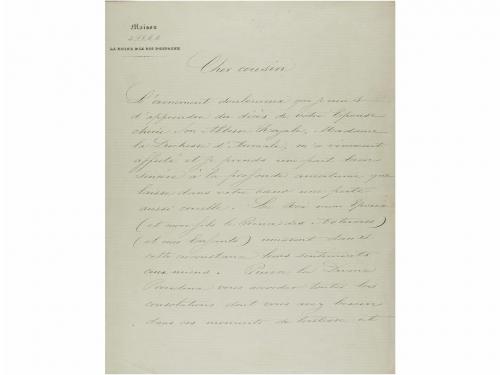 Maison
de S.S.M.M.
LA REINE & LE ROI D'ESPAGNE
Cher cousin
L'événement douloureux que je viens
d'apprendre du décès de votre Epouse
chérie Son Altesse Royale, Madame
la Duchesse d'Aumale, m'a vivement
affecté et je prends une part bien
sincère à la profonde amertume que
laisse dans votre cœur une perte
aussi cruelle. Le Roi mon Epoux
(et mon fils le Prince des Asturies)
(et mes Enfants) unissent dans
cette circonstance leurs sentiments
aux miens. Puisse la Divine
Providence vous accorder toutes les
consolations dont vous avez besoin
dans ces moments de tristesse et